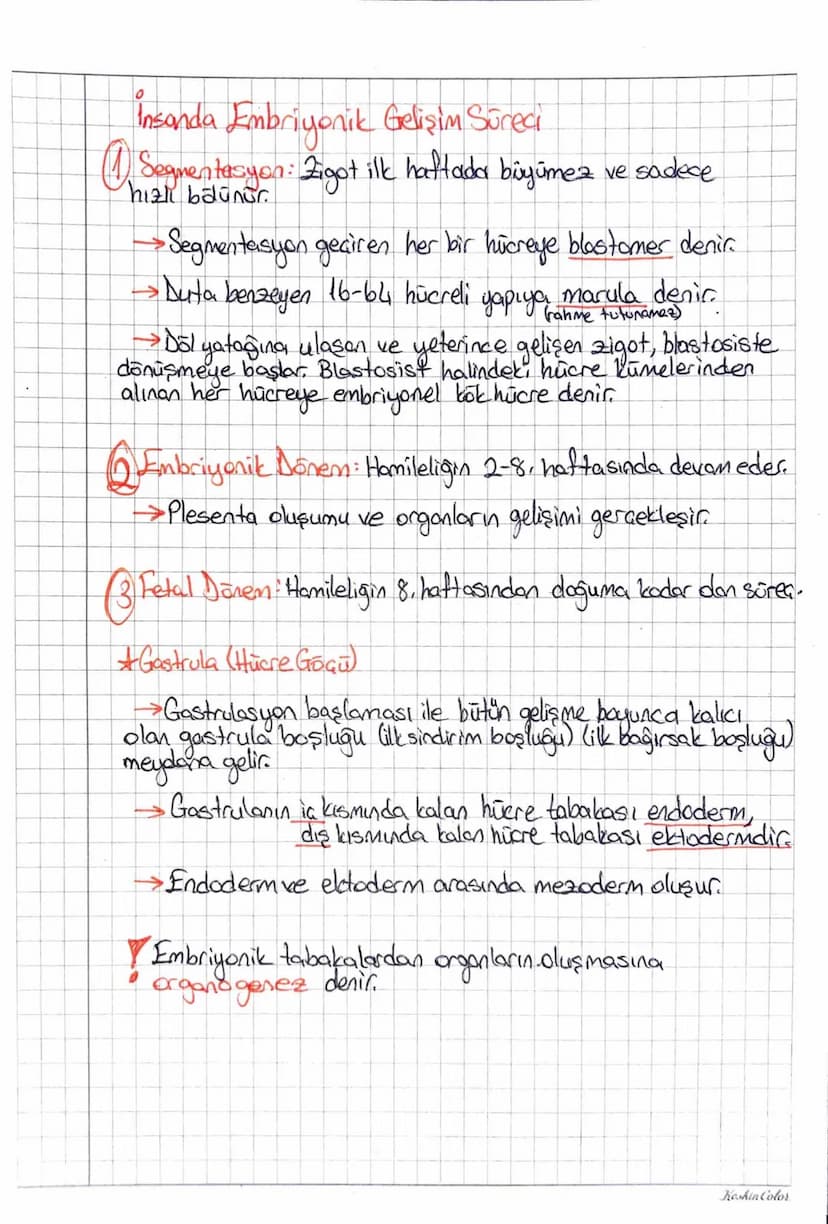 İnsanda Embriyonik Gelişim Süreci
1 Segmentasyon: Zigot ilk haftada büyümez ve sadece
hızlı bölünür.
→ Segmentasyon geçiren her bir hücreye blastomer denir.
→ Duta benzeyen 16-64 hücreli yapıya marula denir.
(rahme tutunamaz)
→ Döl yatağına ulaşan ve yeterince gelişen zigot, blastosiste
dönüşmeye başlar. Blastosist halindeki hücre kümelerinden
alınan her hücreye embriyonel kök hücre denir.
2 Embriyonik Dönem: Hamileliğin 2-8. haftasında devam eder.
→ Plesenta oluşumu ve organların gelişimi gerçekleşir.
3 Fetal Dönem: Hamileliğin 8. haftasından doğuma kadar olan süreç.
★ Gastrula (Hücre Göçü)
→ Gastrulasyon başlaması ile bütün gelişme boyunca kalıcı
olan gastrula boşluğu (ilk sindirim boşluğu) (ilk bağırsak boşluğu)
meydana gelir.
→ Gastrulanın iç kısmında kalan hücre tabakası endoderm,
dış kısmında kalan hücre tabakası ektodermdir.
→ Endoderm ve ektoderm arasında mezoderm oluşur.
! Embriyonik tabakalardan organların oluşmasına
organogenez denir.
Keskin Color